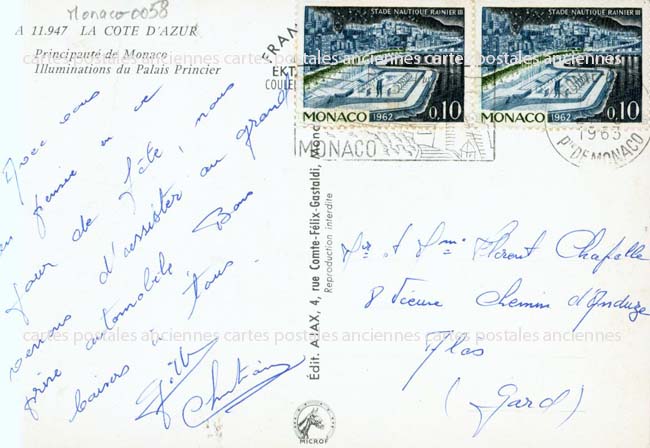 Monaco 0058
A 11.947 LA COTE D'AZUR
Principauté de Monaco
Illuminations du Palais Princier
Avec vous
en pensée en ce
jour de fête, nous
venons d'assister au grand
prix automobile Bons
baisers à tous
Christiane
FRAN
EKT
COULE
STADE NAUTIQUE RAINIER III
MONACO 1962 0,10
STADE NAUTIQUE RAINIER III
MONACO 1962 0,10
MONACO
1963
PTÉ DE MONACO
Edit. AJAX, 4, rue Comte-Félix-Gastaldi, Monac
Reproduction interdite
Mr et Mme Florent Chapelle
8 Vieux Chemin d'Anduze
Alas
(Gard)
cartes postales anciennes cartes postales anciennes cartes postales anciennes
cartes postales anciennes cartes postales anciennes cartes postales anciennes
MICROF